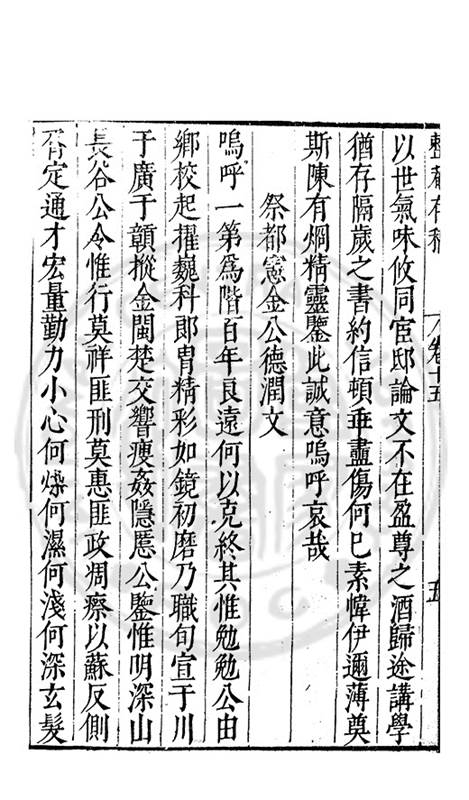 整菴存稿 卷十五 五
以世氣味攸同宦邸論文不在盈尊之酒歸途講學
猶存隔歲之書約信頓乖盡傷何已素幃伊邇薄奠
斯陳有烱精靈鑒此誠意嗚呼哀哉
祭都憲金公德潤文
嗚呼一第為階百年良遠何以克終其惟勉勉公由
鄉校起擢巍科郎胄精彩如鏡初磨乃職旬宣于川
于廣于贑摐金閩楚交響瘦姦隱慝公鑒惟明深山
長谷公令惟行莫祥匪刑莫惠匪政凋瘵以蘇反側
胥定通才宏量勤力小心何燥何濕何淺何深玄髮